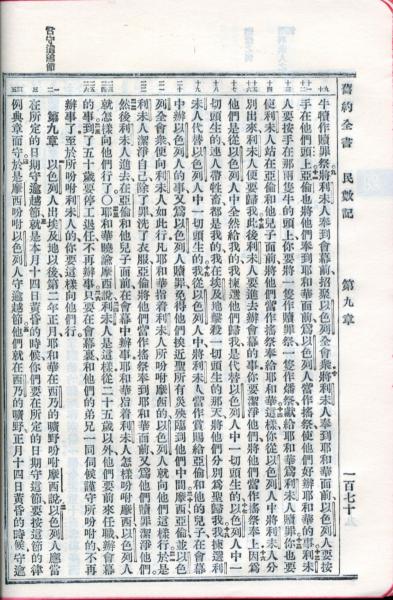 舊約全書 民數記 第九章 一百七十
牛犢作贖罪祭將利未人奉到會幕前招聚以色列全會衆將利未人奉到耶和華面前以色列人要按
手在他們頭上亞倫也將他們奉到耶和華面前爲以色列人當作搖祭使他們好辦耶和華的事利未
人要按手在那兩隻牛的頭上你要將一隻作贖罪祭一隻作燔祭獻給耶和華爲利未人贖罪你也要
使利未人站在亞倫和他兒子面前將他們當作搖祭奉給耶和華這樣你從以色列人中將利未人分
別出來利未人便要歸我此後利未人要進去辦會幕的事你要潔淨他們將他們當作搖祭奉上因爲
他們是從以色列人中全然給我的我揀選他們歸我是代替以色列人中一切頭生的以色列人中一
切頭生的連人帶牲畜都是我的我在埃及地擊殺一切頭生的那天將他們分別爲聖歸我我揀選利
未人代替以色列人中一切頭生的我從以色列人中將利未人當作賞賜給亞倫和他的兒子在會幕
中辦以色列人的事又爲以色列人贖罪免得他們挨近聖所有災殃臨到他們中間摩西亞倫並以色
列全會衆便向利未人如此行凡耶和華指着利未人所吩咐摩西的以色列人就向他們這樣行於是
利未人潔淨自己除了罪洗了衣服亞倫將他們當作搖祭奉到耶和華面前又爲他們贖罪潔淨他們
然後利未人進去在亞倫和他兒子面前在會幕中辦事耶和華指着利未人怎樣吩咐摩西以色列人
就怎樣向他們行了〇耶和華曉諭摩西說利未人是這樣從二十五歲以外他們要前來任職辦會幕
的事到了五十歲要停工退任不再辦事只要在會幕裏和他們的弟兄一同伺候謹守所吩咐的不再
辦事了至於所吩咐利未人的你要這樣向他們行
第九章 以色列人出埃及地以後第二年正月耶和華在西乃的曠野吩咐摩西說以色列人應當
在所定的日期守逾越節就是本月十四日黃昏的時候你們要在所定的日期守這節要按這節的律
例典章而守於是摩西吩咐以色列人守逾越節他們就在西乃的曠野正月十四日黃昏的時候守逾
當守逾越節